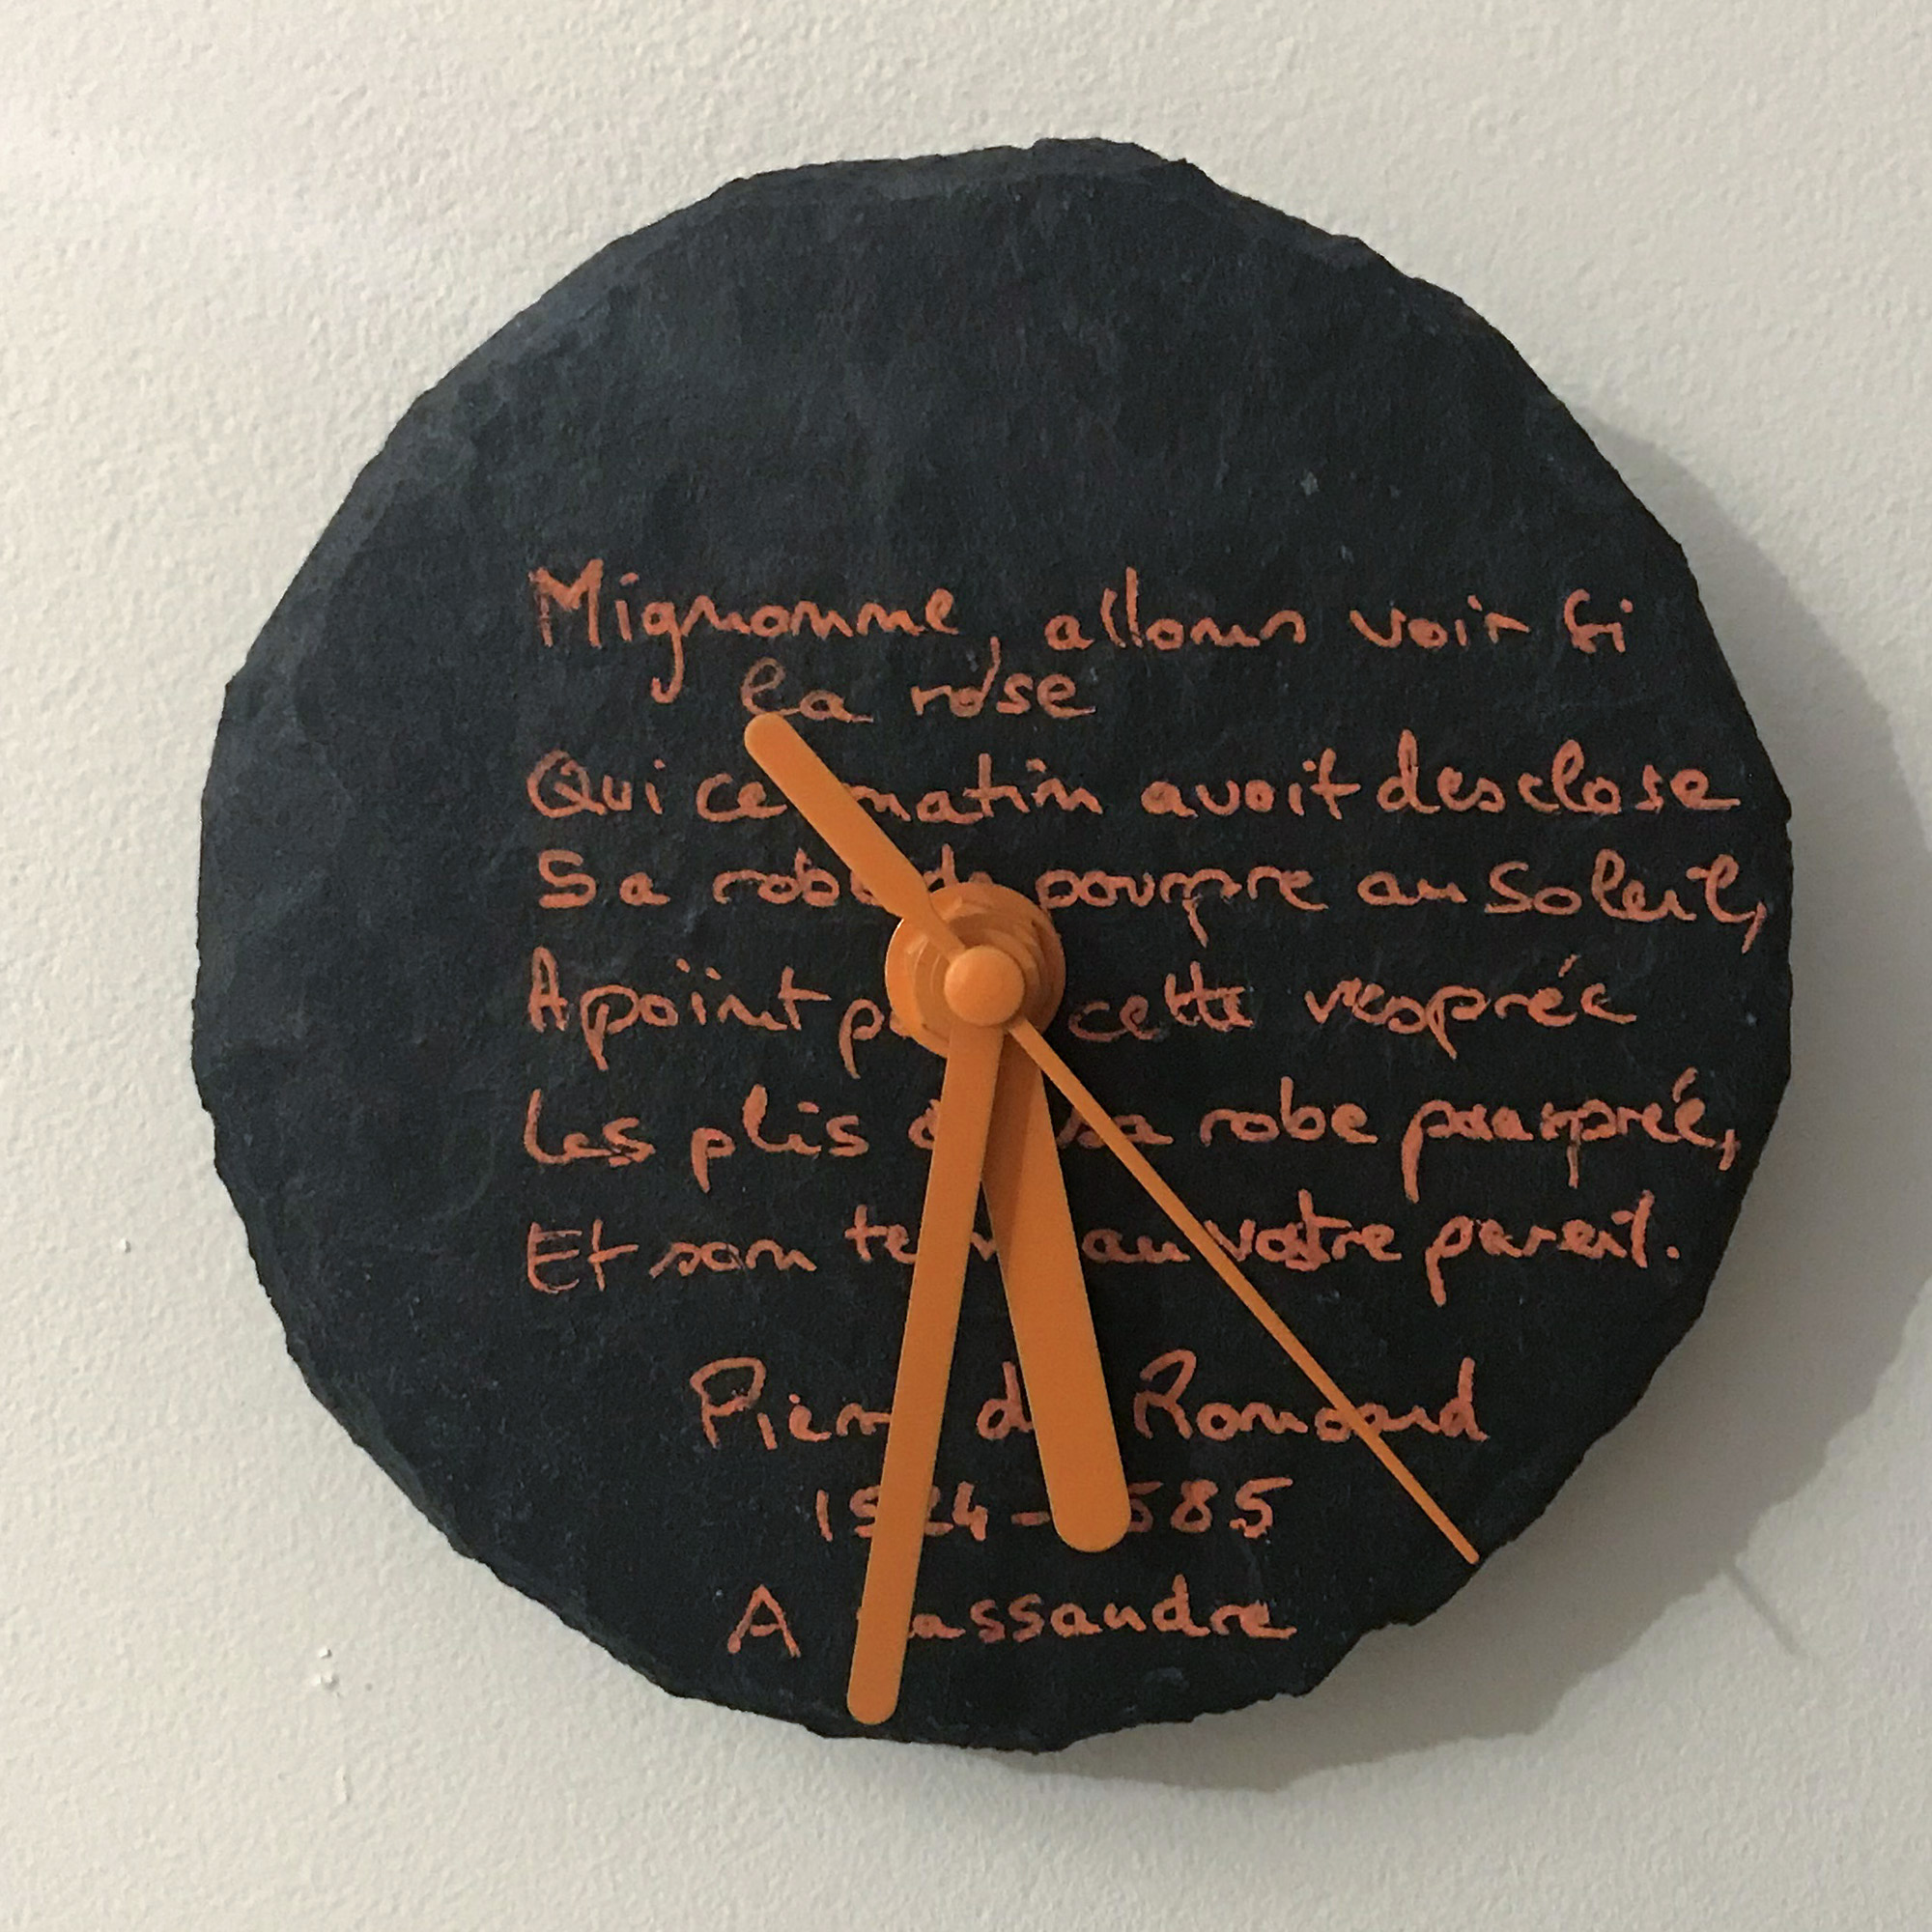 Mignonne, allons voir si
la rose
Qui ce matin avoit desclose
Sa robe de pourpre au Soleil,
A point p cette vesprée
Les plis d sa robe pourprée,
Et son te au vostre pareil.
Pierr d Ronsard
1524-1585
A Cassandre